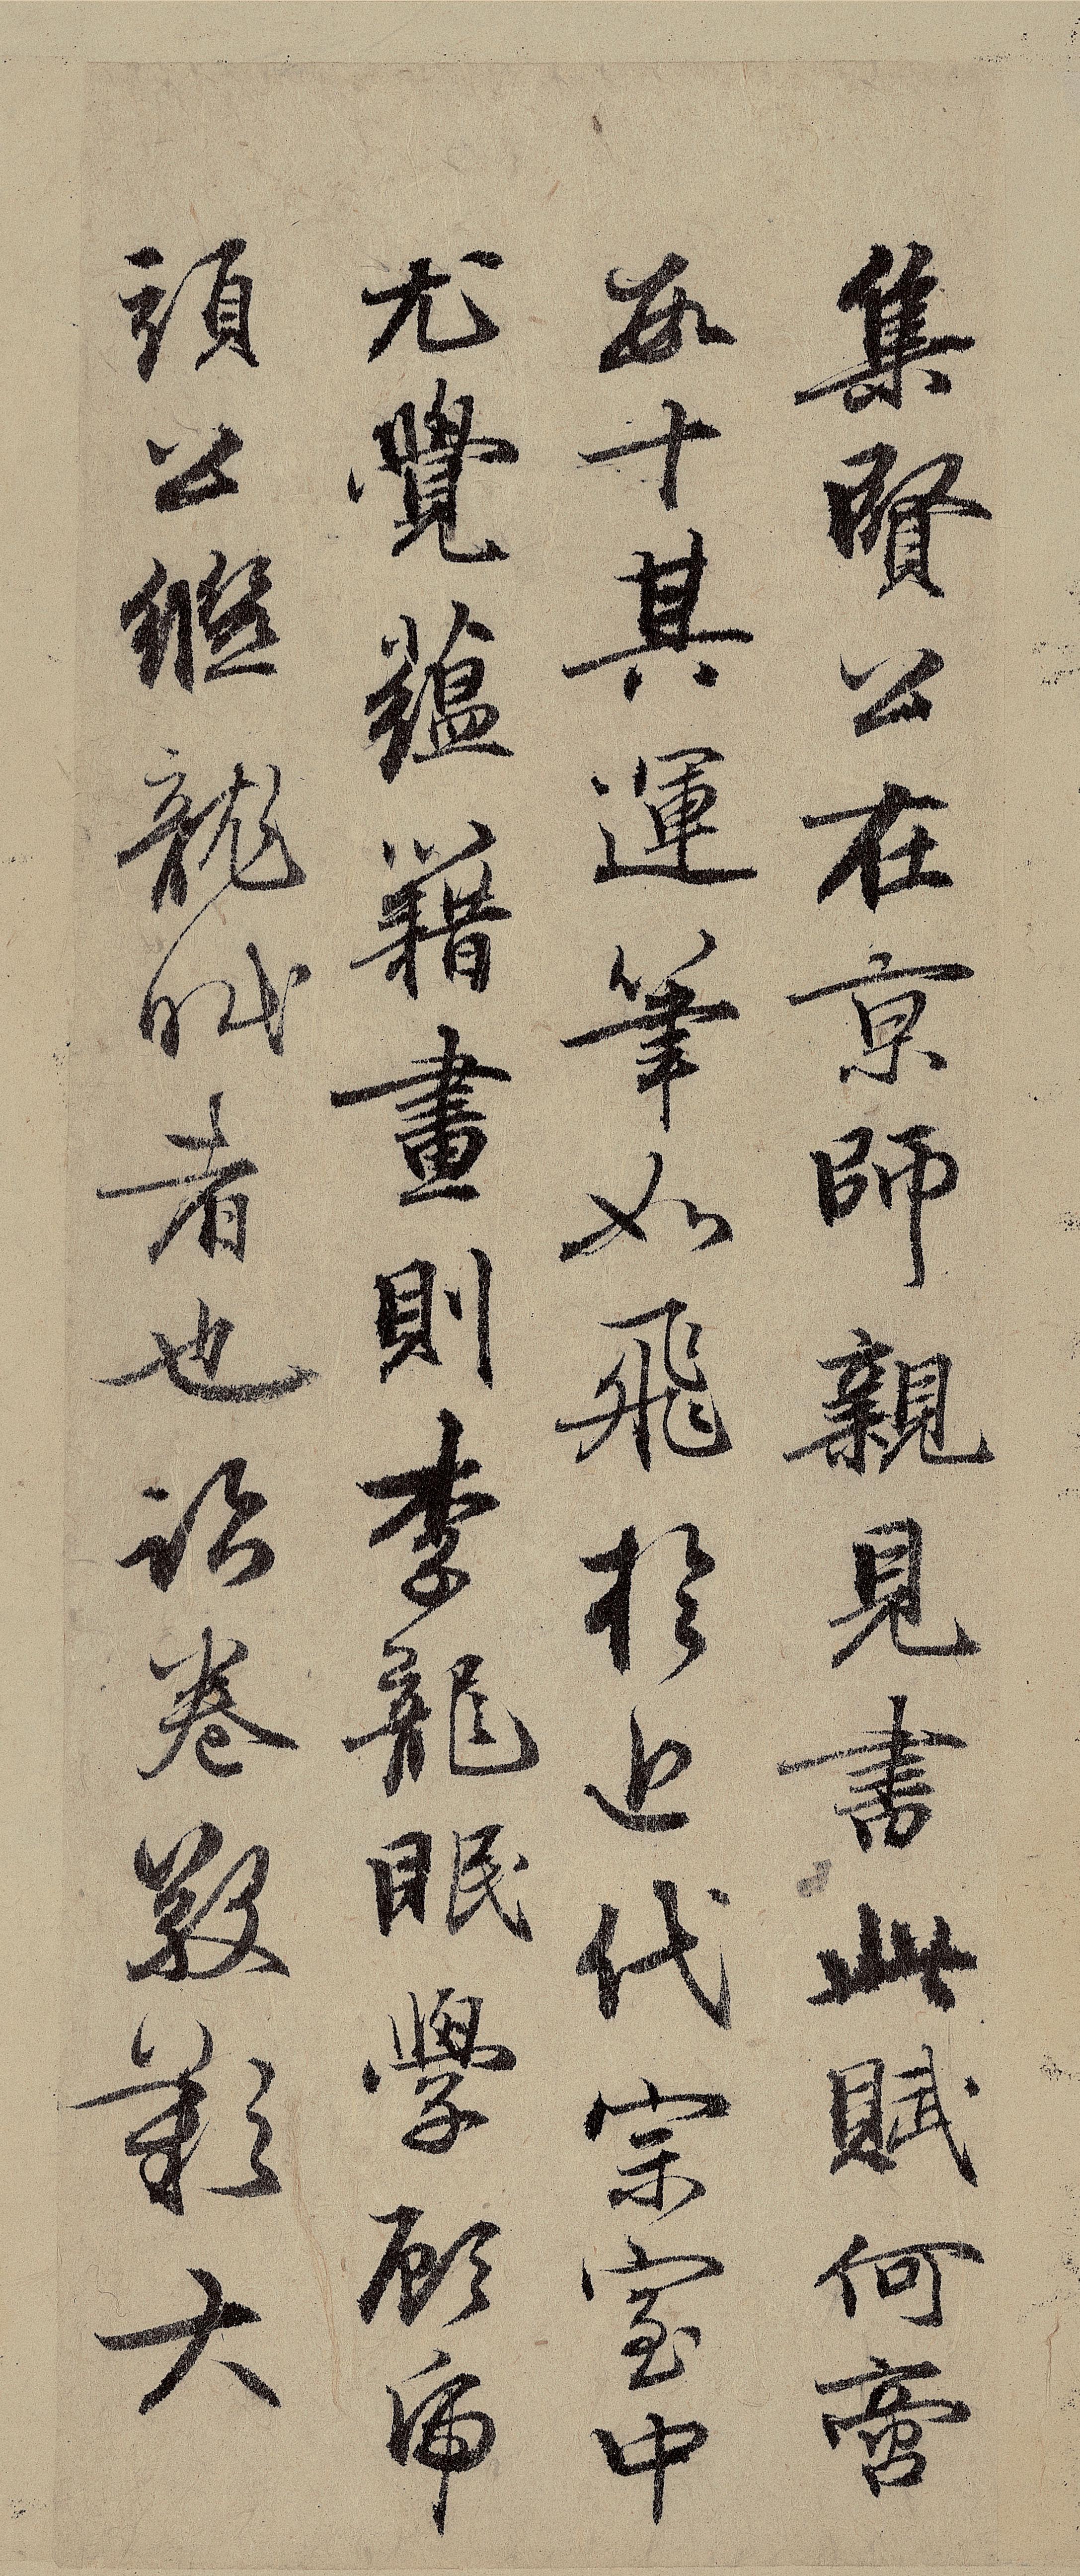 集賢公在京師親見書此賦何啻
數十其運筆如飛於近代宗室中
尤覺蘊藉畫則李龍眠學顧虎
頭公繼龍眠者也卷歎大